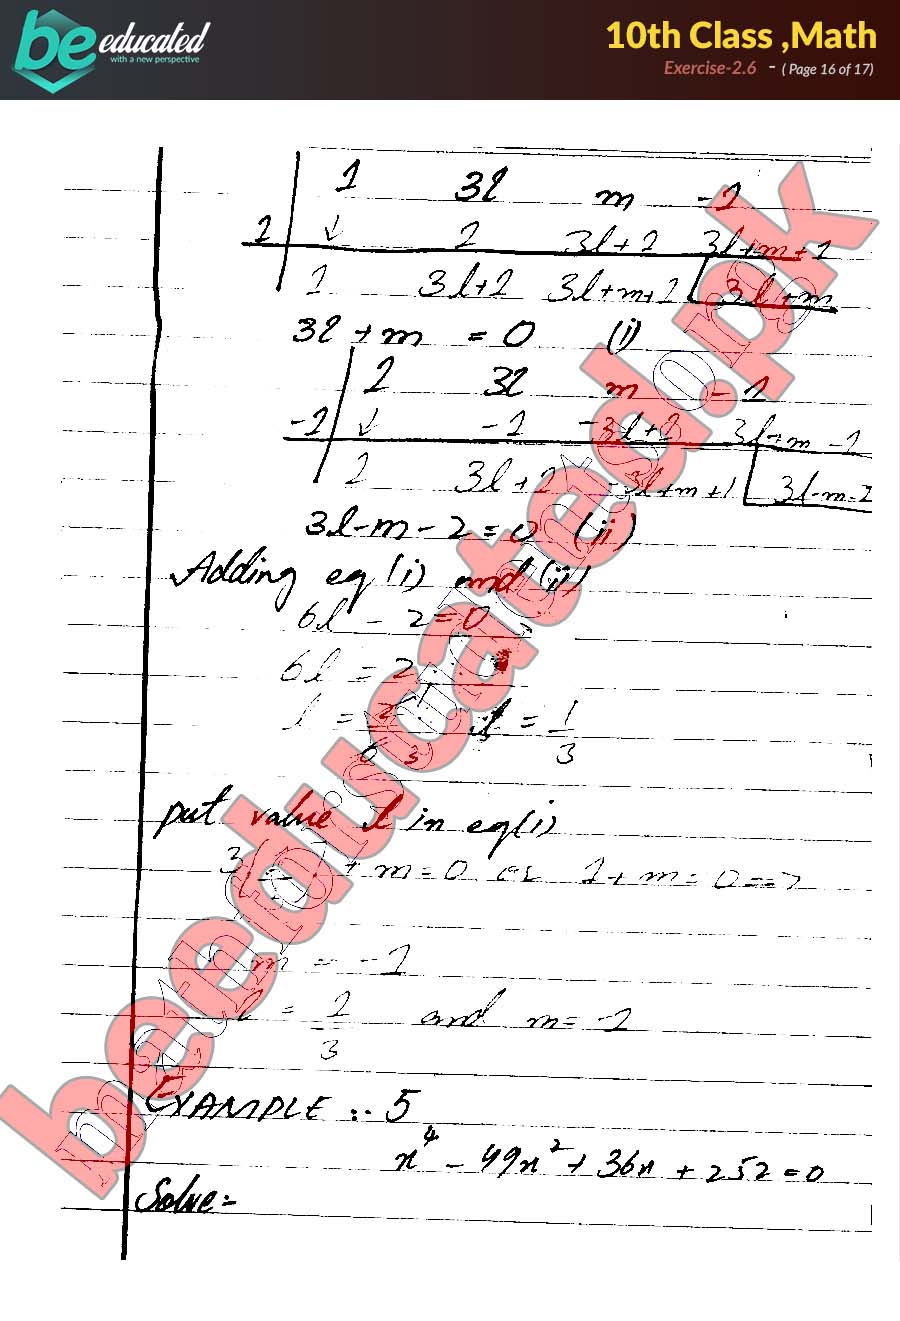 be educated
with a new perspective
10th Class ,Math
Exercise-2.6 - ( Page 16 of 17)
1 3l m -1
1 ↓ 1 3l+1 3l+m+1
1 3l+1 3l+m+1 3l+m
3l+m = 0 (i)
1 3l m -1
-1 ↓ -1 -3l+1 3l-m-1
1 3l-1 -3l+m+1 3l-m-2
3l-m-2=0 (ii)
Adding eq(i) and (ii)
6l - 2 = 0
6l = 2
l = 2/6 l = 1/3
put value l in eq(i)
3(1/3) + m=0 or 1+m=0=>
m = -1
l = 1/3 and m= -1
EXAMPLE :- 5
x⁴ - 49x² + 36x + 252 = 0
Solve:-
beeducated.pk